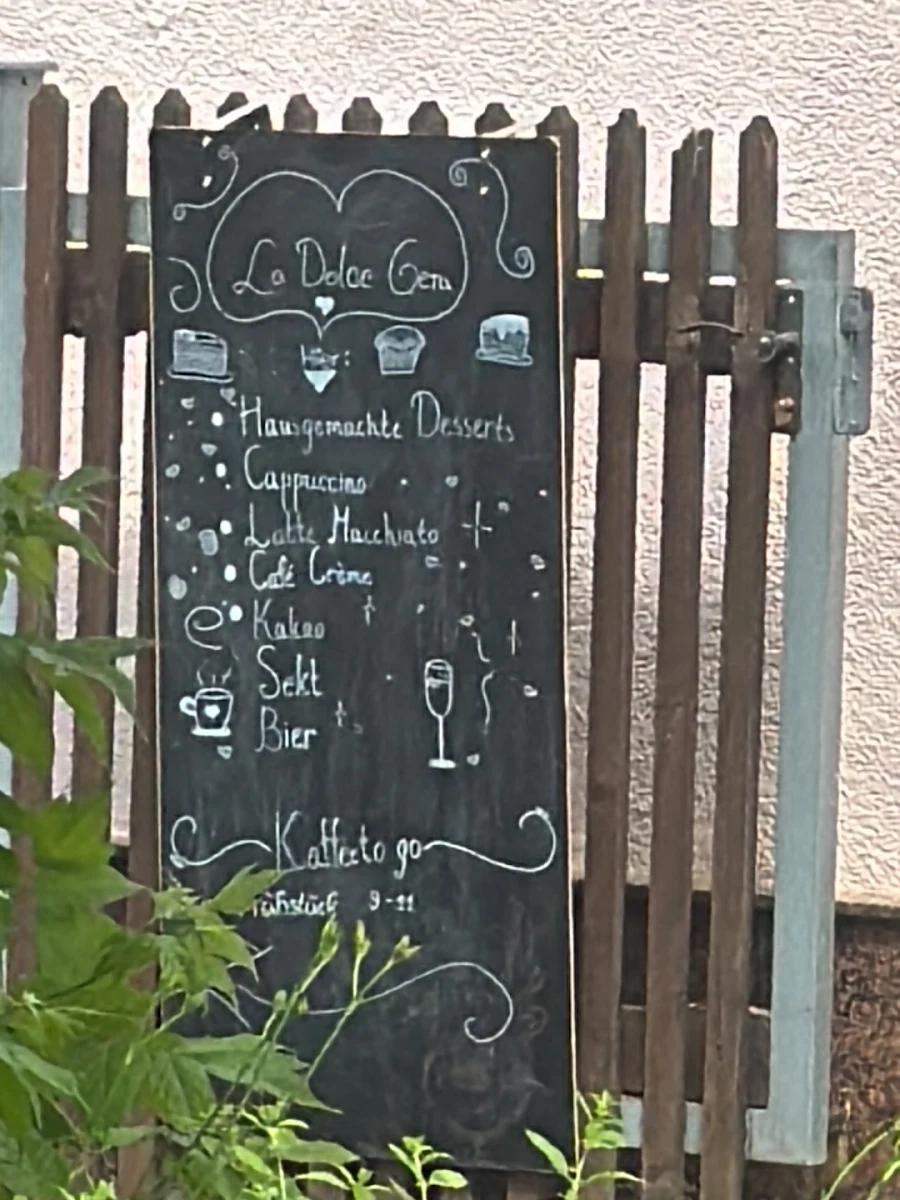 La Dolce Gera
Hausgemachte Desserts
Cappuccino
Latte Macchiato
Café Crème
Kakao
Sekt
Bier
Kaffee to go
rühstück 9-11